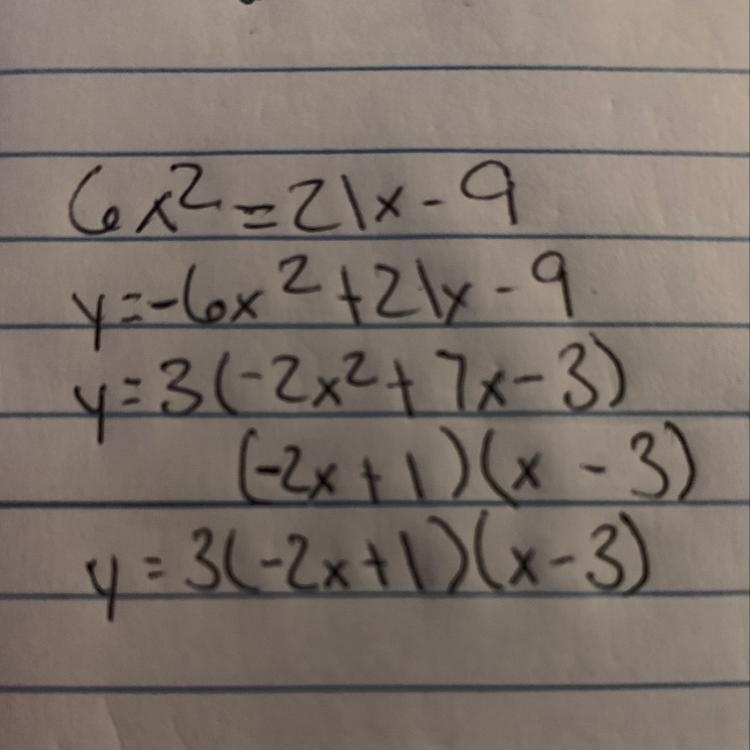 6x² = 21x - 9
y = -6x² + 21x - 9
y = 3(-2x² + 7x - 3)
(-2x + 1)(x - 3)
y = 3(-2x + 1)(x - 3)